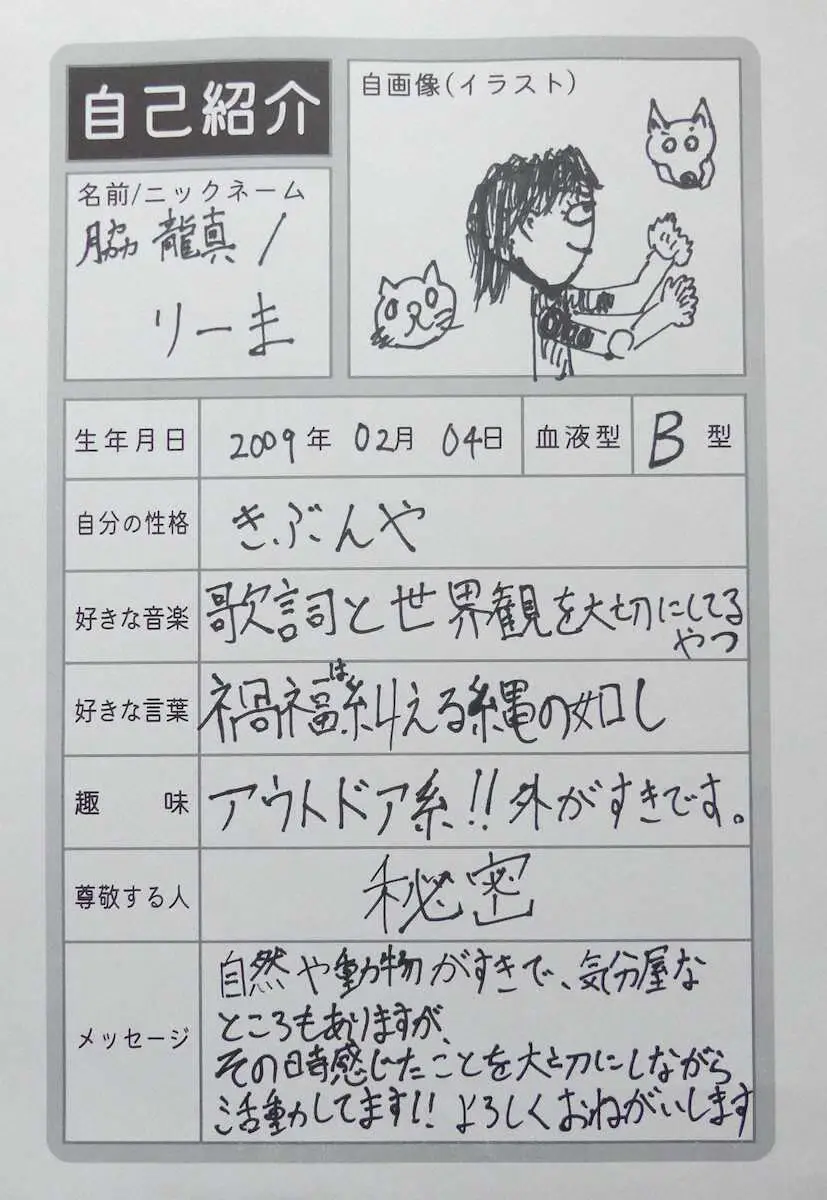 自己紹介
自画像(イラスト)
名前/ニックネーム
脇 龍真/
りーま
生年月日 2009年 02月 04日 血液型 B型
自分の性格 きぶんや
好きな音楽 歌詞と世界観を大切にしてる
やつ
好きな言葉 禍福は糾える縄の如し
趣味 アウトドア系!!外がすきです。
尊敬する人 秘密
メッセージ
自然や動物がすきで、気分屋な
ところもありますが、
その時感じたことを大切にしながら
活動してます!! よろしくおねがいします